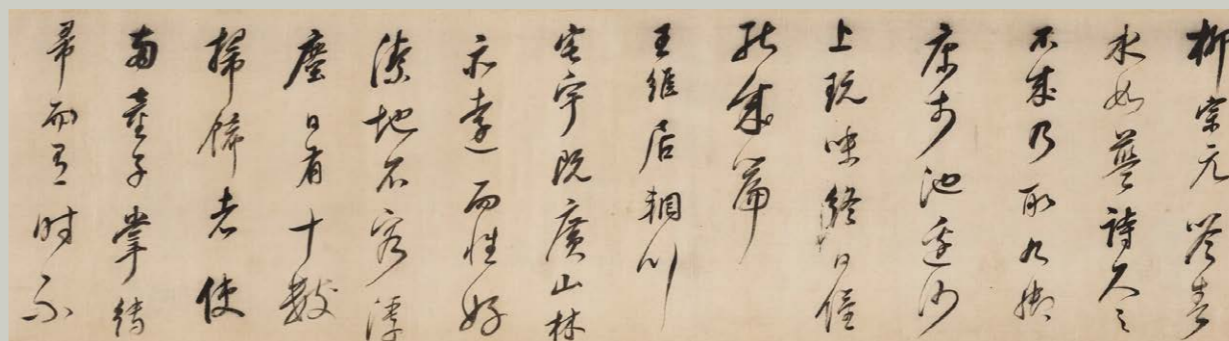 柳宗元吟春
水如藍詩久之
不成乃取九脚
床于池邊沙
上玩味終日僅
能成篇
王維居輞川
宅宇既廣山林
亦遠而性好
潔地不容浮
塵日有十數
掃飾者使
兩童子掌縛
帚而有時不